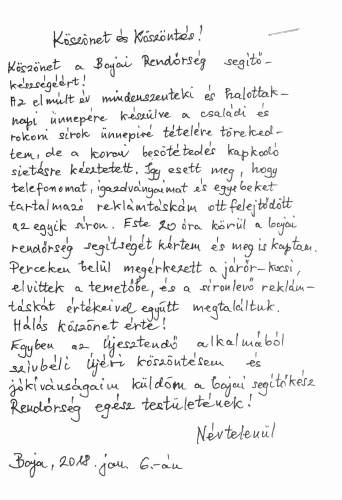 Köszönet és Köszöntés!
Köszönet a Bajai Rendőrség segítő-
készségéért!
Az elmúlt év mindenszenteki és Halottak-
napi ünnepére készülve a családi és
rokoni sírok ünnepiré tételére töreked-
tem, de a korai besötétedés kapkodó
sietésre késztetett. Így esett meg, hogy
telefonomat, igazolványaimat és egyebeket
tartalmazó reklámtáskám ott felejtődött
az egyik síron. Este 20 óra körül a bajai
rendőrség segítségét kértem és meg is kaptam.
Perceken belül megérkezett a járőr-kocsi,
elvittek a temetőbe, és a síronlevő reklám-
táskát értékeivel együtt megtaláltuk.
Hálás köszönet érte!
Egyben az Újesztendő alkalmából
szívbéli Újévi köszöntésem és
jókívánságaim küldöm a bajai segítőkész
Rendőrség egész testületének!
Névtelenül
Baja, 2018. jan. 6.-án